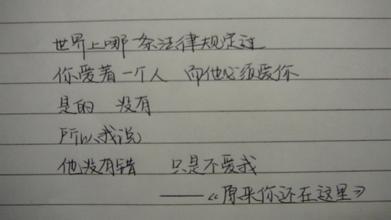 世界上哪一条法律规定过
你爱着一个人 而他必须爱你
是的 没有
所以我说
他没有错 只是不爱我
——《原来你还在这里》